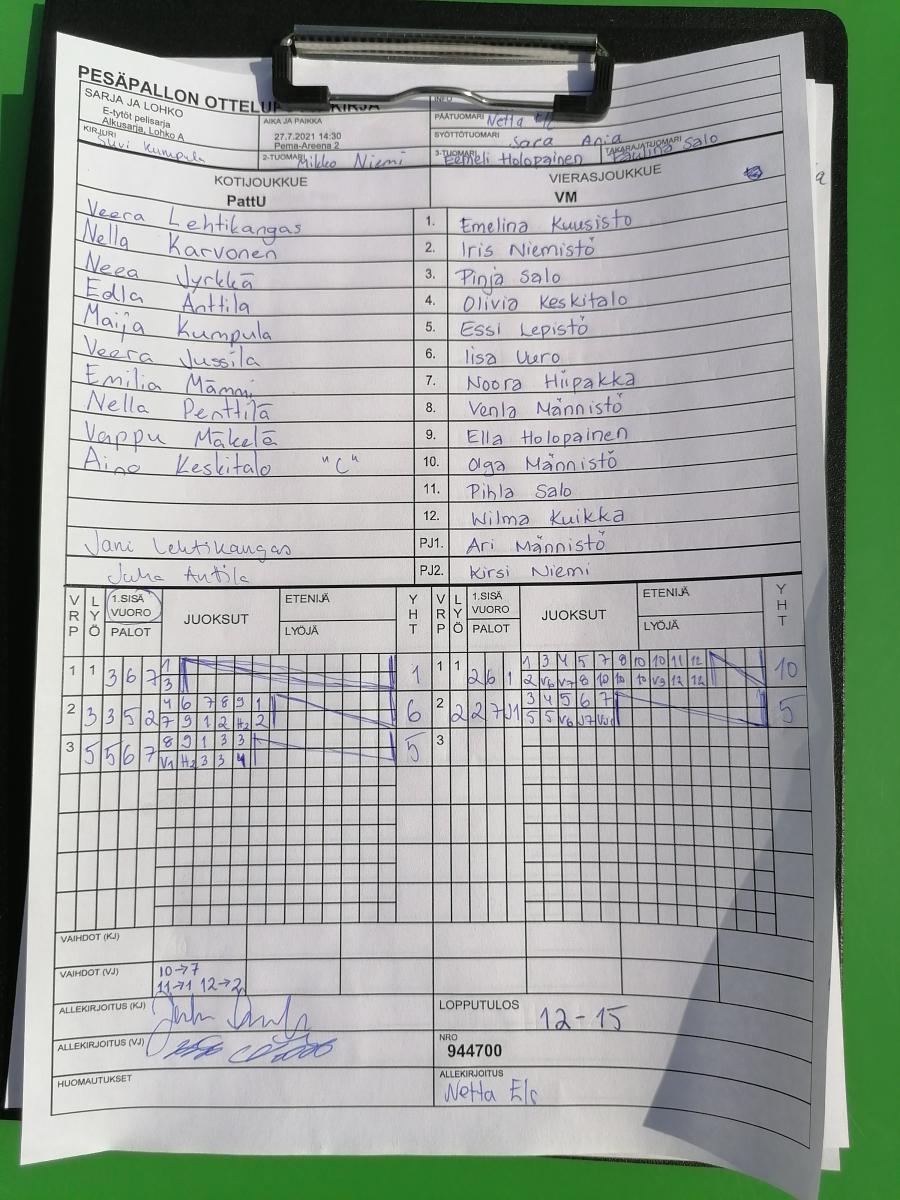 PESÄPALLON OTTELU KIRJA
SARJA JA LOHKO
E-tytöt pelisarja
Alkusarja, Lohko A
AIKA JA PAIKKA
27.7.2021 14:30
Pema-Areena 2
INFO
PÄÄTUOMARI Netta
SYÖTTÖTUOMARI Sara Ania
KIRJURI Suvi Kumpula
2-TUOMARI Mikko Niemi
3-TUOMARI Eemeli Holopainen
TAKARAJATUOMARI Pauliina Salo
KOTIJOUKKUE VIERASJOUKKUE
PattU VM
Veera Lehtikangas 1. Emelina Kuusisto
Nella Karvonen 2. Iris Niemistö
Neea Jyrkkä 3. Pinja Salo
Edla Anttila 4. Olivia Keskitalo
Maija Kumpula 5. Essi Lepistö
Veera Jussila 6. Iisa Uuro
Emilia Männi 7. Noora Hiipakka
Nella Penttilä 8. Venla Männistö
Vappu Mäkelä 9. Ella Holopainen
Aino Keskitalo "C" 10. Olga Männistö
11. Pihla Salo
12. Wilma Kuikka
Jani Lehtikangas PJ1. Ari Männistö
Juha Antila PJ2. Kirsi Niemi
VRP LYÖ 1.SISÄ VUORO PALOT JUOKSUT ETENIJÄ LYÖJÄ YHT VRP LYÖ 1.SISÄ VUORO PALOT JUOKSUT ETENIJÄ LYÖJÄ YHT
1 1 3 6 7 1 1 1 1 2 6 1 1 3 4 5 7 8 10 10 11 12 10
3 2 V6 V7 8 10 10 10 V9 12 12
2 3 3 5 2 4 6 7 8 9 1 6 2 2 2 7 J1 3 4 5 6 7 5
7 9 1 2 H2 2 5 5 V6 J7
3 5 5 6 7 8 9 1 3 3 5 3
V1 H2 3 3 4
VAIHDOT (KJ)
VAIHDOT (VJ) 10→7
11→1 12→2
ALLEKIRJOITUS (KJ)
LOPPUTULOS 12-15
ALLEKIRJOITUS (VJ)
NRO
944700
HUOMAUTUKSET
ALLEKIRJOITUS
Netta Els